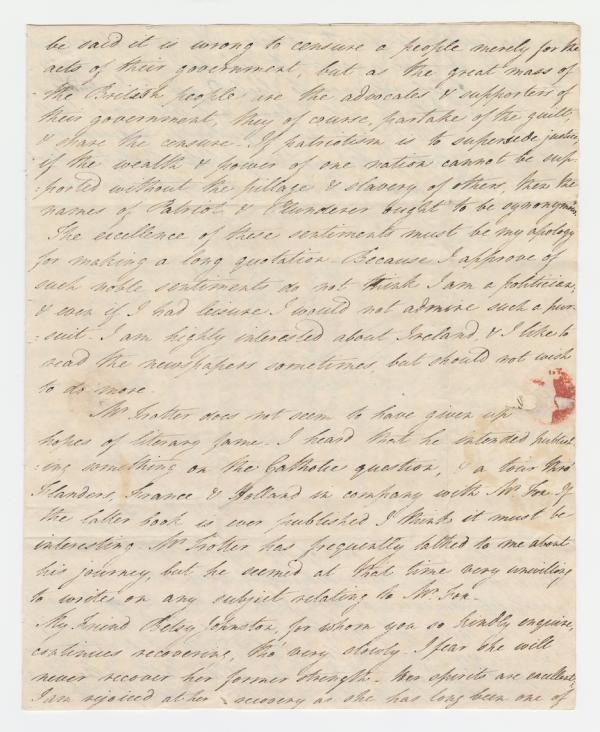 be said it is wrong to censure a people merely for the
acts of their government, but as the great mass of
the British people are the advocates & supporters of
their government, they of course, partake of the guilt,
& share the censure. If patriotism is to supersede justice,
if the wealth & power of one nation cannot be sup-
:ported without the pillage & slavery of others, then the
names of Patriot & Plunderer ought to be synonymous
The excellence of these sentiments must be my apology
for making a long quotation. Because I approve of
such noble sentiments do not think I am a politician,
& even if I had leisure I would not admire such a pur-
:suit. I am highly interested about Ireland, & I like to
read the newspapers sometimes, but should not wish
to do more.
Mr. Trotter does not seem to have given up
hopes of literary fame. I heard that he intended publish
:ing something on the Catholic question, & a tour thro'
Flanders, France & Holland in company with Mr. Fox. If
the latter book is ever published I think it must be
interesting. Mr. Trotter has frequently talked to me about
his journey, but he seemed at that time very unwilling
to write on any subject relating to Mr. Fox.
My Friend Betsy Johnston, for whom you so kindly enquire,
continues recovering, tho very slowly. I fear she will
never recover her former strength. Her spirits are excellent,
I am rejoiced at her recovery as she has long been one of